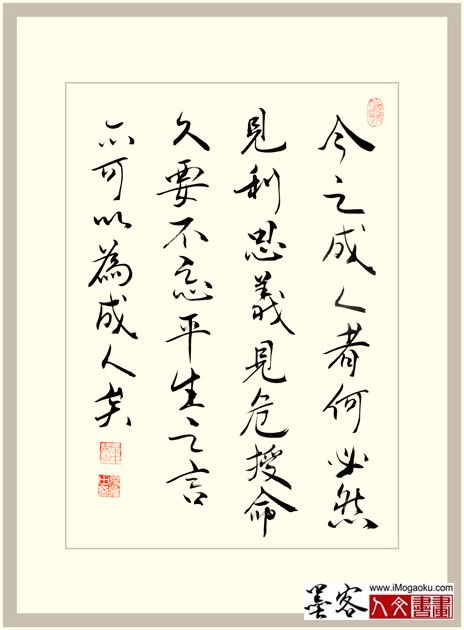 今之成人者何必然
見利思義見危授命
久要不忘平生之言
亦可以為成人矣
墨客
www.iMogaoku.com
人文書畫